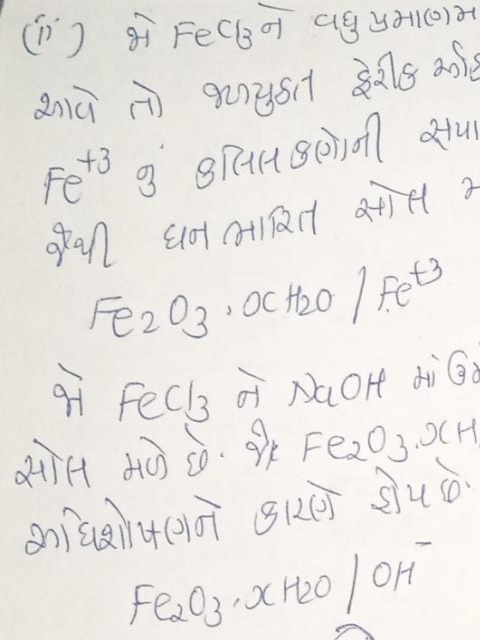 (ii) જો FeCl3 ને વધુ પ્રમાણમ
આવે તો જળયુક્ત ફેરીક ઓ
Fe+3 નું કલિલ કણોની સપા
જેથી ધન ભારિત સોલ મ
Fe2O3 . xH2O / Fe+3
જો FeCl3 ને NaOH માં ઉમે
સોલ મળે છે. જે Fe2O3.xH
અધિશોષણને કારણે હોય છે.
Fe2O3.xH2O / OH-